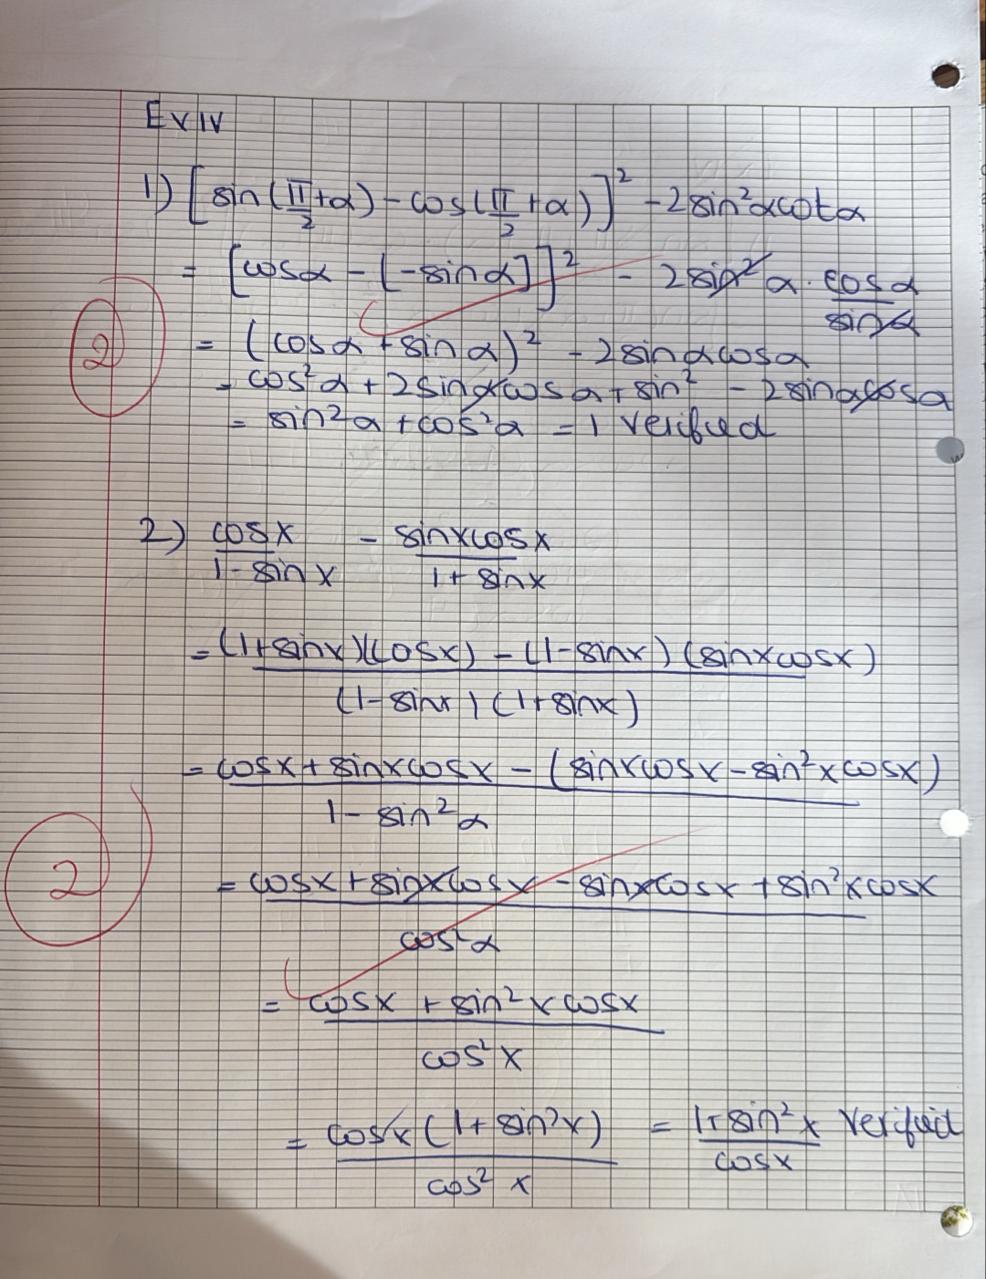 Ex IV
1) [sin(π/2+α) - cos(π/2+α)]² - 2sin²αcotα
= [cosα - [-sinα]]² - 2sin²α. cosα/sinα
= (cosα + sinα)² - 2sinαcosα
2
= cos²α + 2sinαcosα + sin² - 2sinαcosα
= sin²α + cos²α = 1 Verified
2) cosx/1-sinx - sinxcosx/1+sinx
= (1+sinx)(cosx) - (1-sinx)(sinxcosx)
(1-sinx)(1+sinx)
= cosx + sinxcosx - (sinxcosx - sin²xcosx)
1 - sin²α
2
= cosx + sinxcosx - sinxcosx + sin²xcosx
cos²α
= cosx + sin²xcosx
cos²x
= cosx(1+sin²x)/cos²x = 1+sin²x/cosx Verified